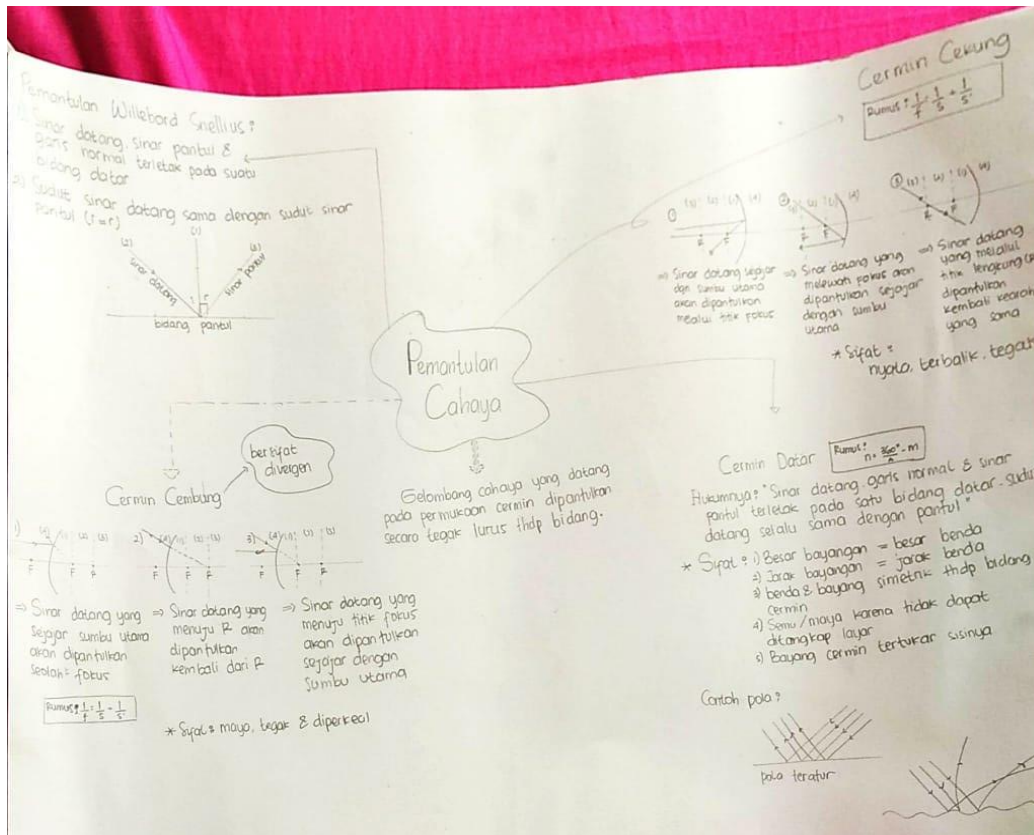 Pemantulan Willebord Snellius :
Sinar datang, sinar pantul &
garis normal terletak pada suatu
bidang datar
Sudut sinar datang sama dengan sudut sinar
pantul
(2)
(1)
(3)
sinar datang
sinar pantul
i
r
bidang pantul
Cermin Cekung
Rumus : 1/f = 1/s + 1/s'
① (3) (2) (1) (4)
R F
⇒ Sinar datang sejajar
dgn sumbu utama
akan dipantulkan
melalui titik fokus
②
R F
⇒ Sinar datang yang
melewati fokus akan
dipantulkan sejajar
dengan sumbu
utama
③ (3) (2) (1) (4)
⇒ Sinar datang
yang melalui
titik lengkung
dipantulkan
kembali kearah
yang sama
* Sifat :
nyata, terbalik, tegak
Pemantulan
Cahaya
Gelombang cahaya yang datang
pada permukaan cermin dipantulkan
secara tegak lurus thdp bidang.
bersifat
divergen
Cermin Cembung
1) (4) (1) (2) (3)
F F R
⇒ Sinar datang yang
sejajar sumbu utama
akan dipantulkan
seolah² fokus
2) (4) (1) (2) (3)
F F R
⇒ Sinar datang yang
menuju R akan
dipantulkan
kembali dari R
3) (4) (1) (2) (3)
F F R
⇒ Sinar datang yang
menuju titik fokus
akan dipantulkan
sejajar dengan
sumbu utama
Rumus : 1/f = 1/s - 1/s'
* Sifat : maya, tegak & diperkecil
Cermin Datar
Rumus :
n = 360° - m
Hukumnya : "Sinar datang, garis normal & sinar
pantul terletak pada satu bidang datar. Sudu
datang selalu sama dengan pantul"
* Sifat : 1) Besar bayangan = besar benda
2) Jarak bayangan = jarak benda
3) benda & bayang simetrik thdp bidang
cermin
4) Semu / maya karena tidak dapat
ditangkap layar
5) Bayang cermin tertukar sisinya
Contoh pola :
pola teratur